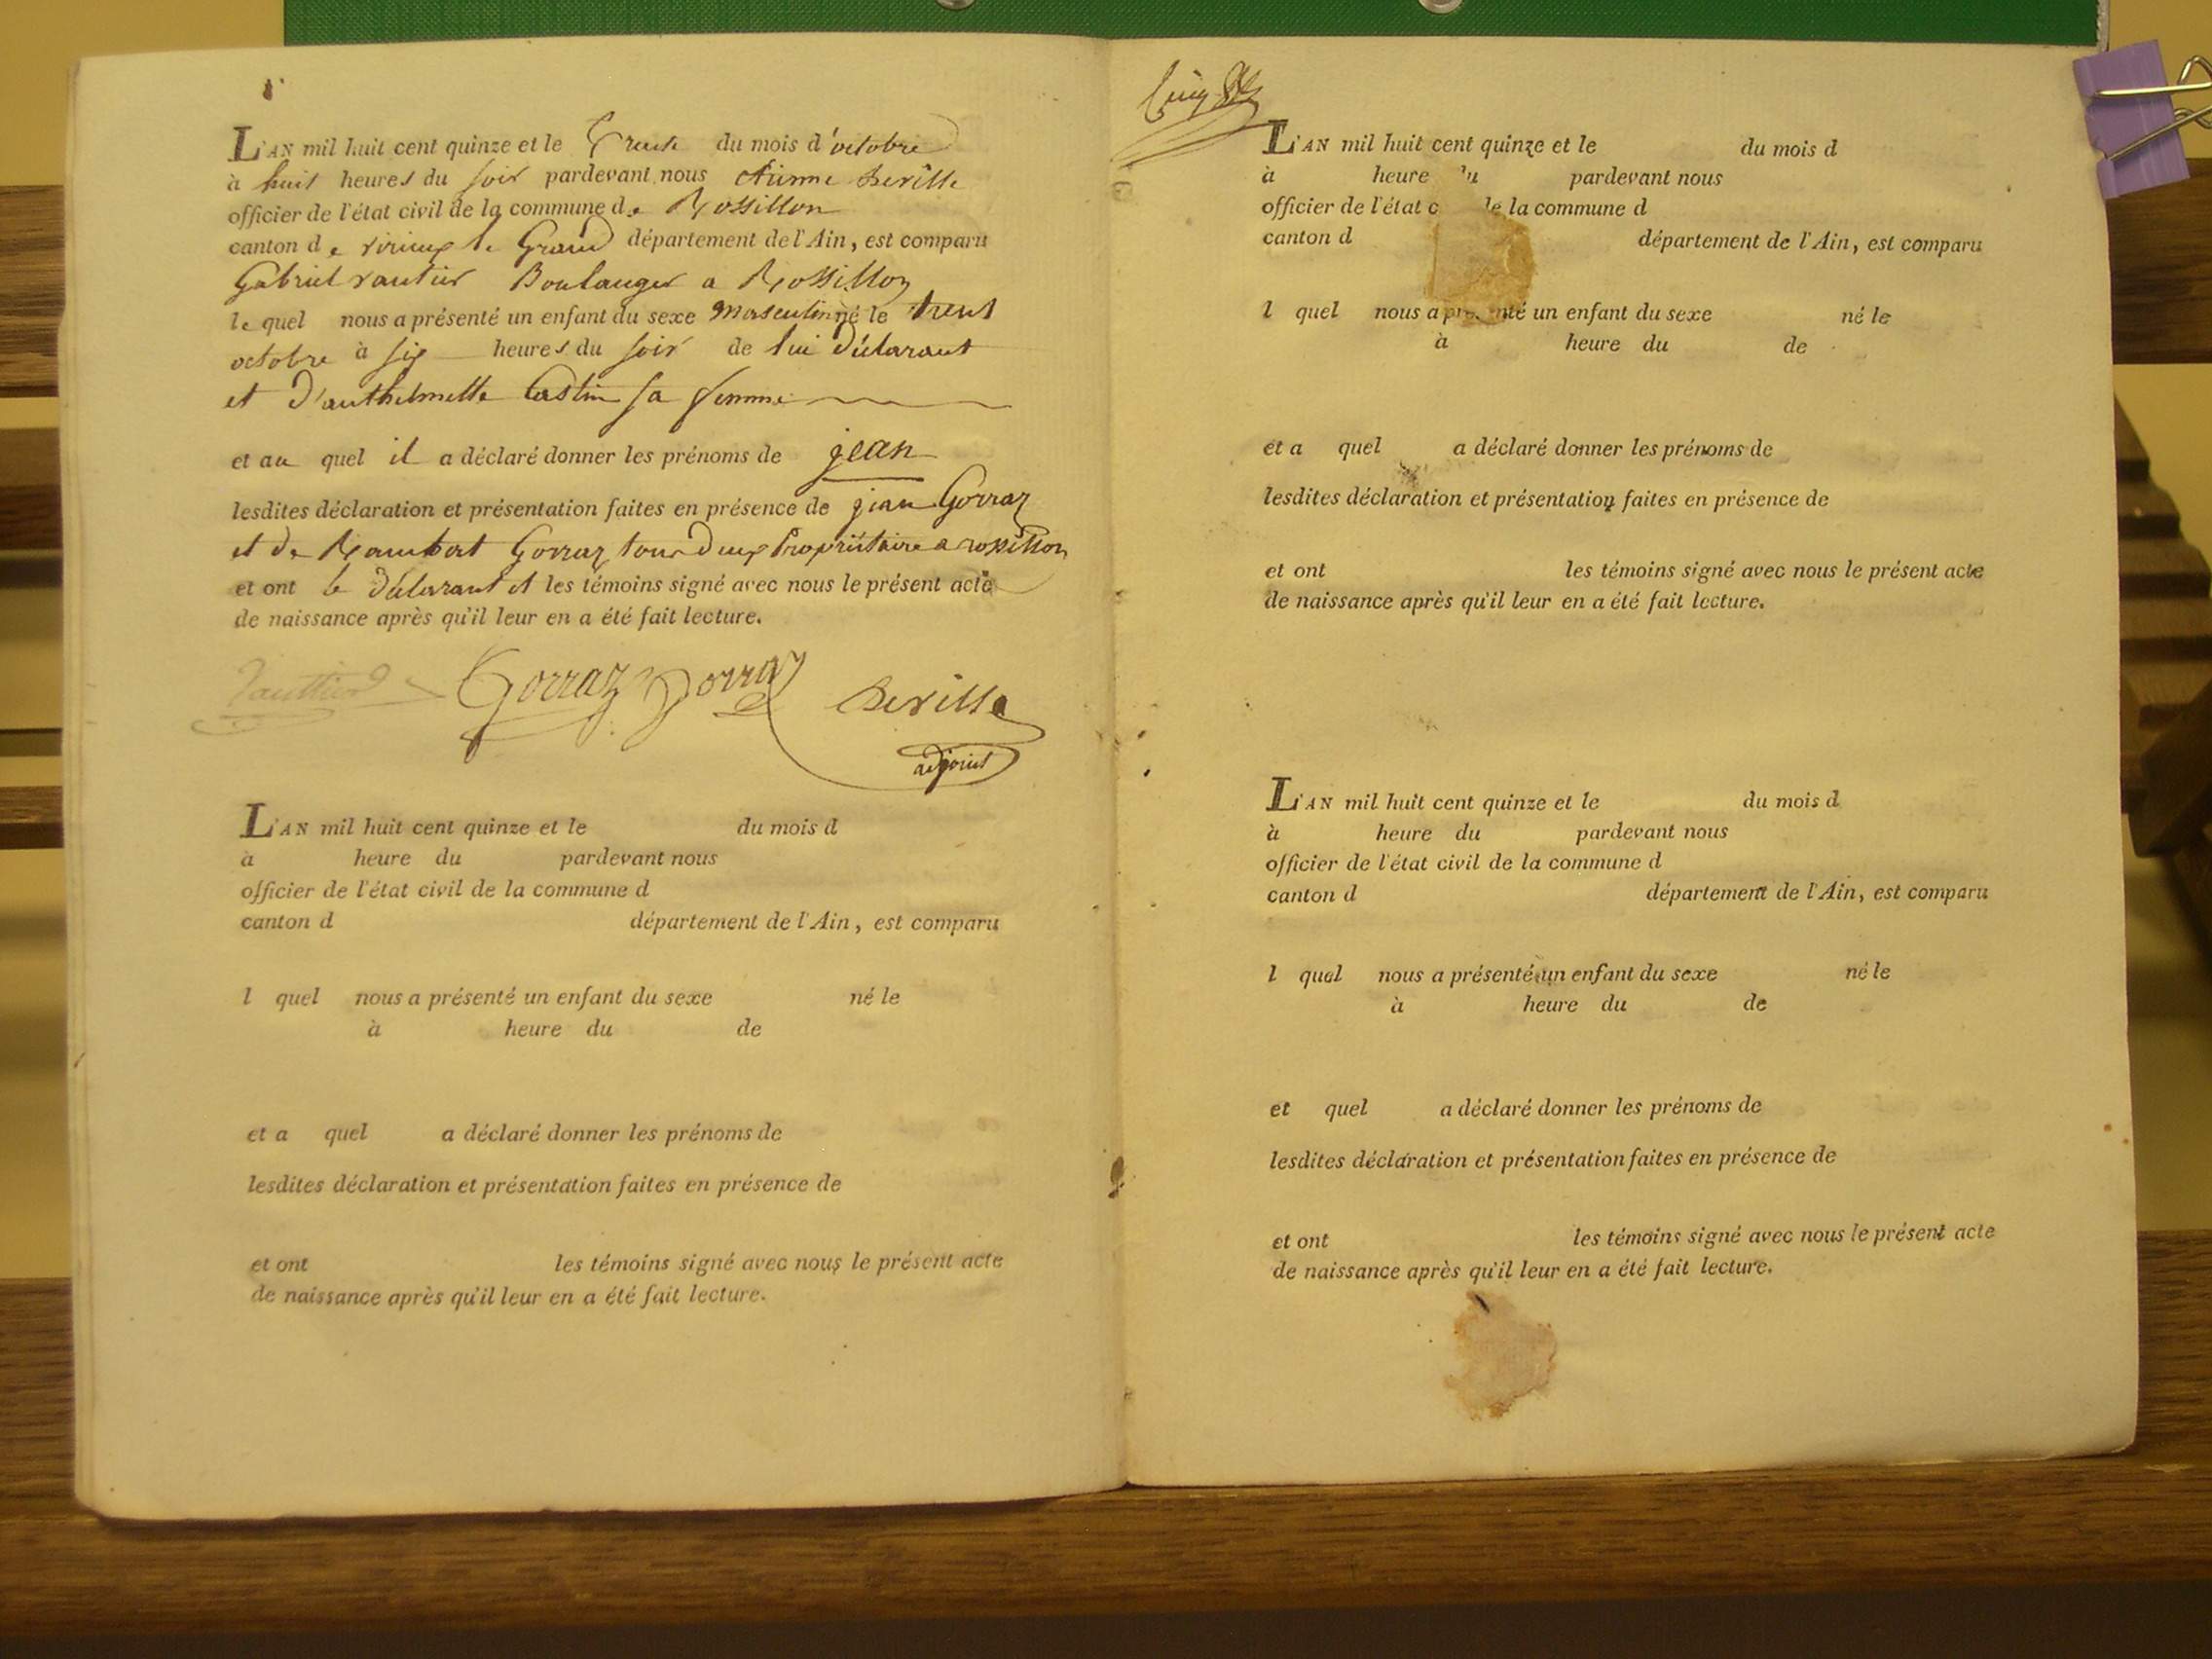 L'AN mil huit cent quinze et le Trente du mois d'octobre
à huit heures du soir pardevant nous etienne
officier de l'état civil de la commune de Rossillon
canton de virieux le Grand département de l'Ain, est comparu
Gabriel vautier Boulanger a Rossillon
le quel nous a présenté un enfant du sexe masculin né le trent
octobre à six heures du soir de lui déclarant
et d'anthelmette sa femme
et au quel il a déclaré donner les prénoms de jean
lesdites déclaration et présentation faites en présence de jean Gorraz
et de Rambert Gorraz tous deux Propriétaire a rossillon
et ont le déclarant et les témoins signé avec nous le présent acte
de naissance après qu'il leur en a été fait lecture.
Vauttier Gorraz Gorraz
adjoint
L'AN mil huit cent quinze et le du mois d
à heure du pardevant nous
officier de l'état civil de la commune d
canton d département de l'Ain, est comparu
l quel nous a présenté un enfant du sexe né le
à heure du de
et a quel a déclaré donner les prénoms de
lesdites déclaration et présentation faites en présence de
et ont les témoins signé avec nous le présent acte
de naissance après qu'il leur en a été fait lecture.
L'AN mil huit cent quinze et le du mois d
à heure du pardevant nous
officier de l'état c le la commune d
canton d département de l'Ain, est comparu
l quel nous a présenté un enfant du sexe né le
à heure du de
et a quel a déclaré donner les prénoms de
lesdites déclaration et présentation faites en présence de
et ont les témoins signé avec nous le présent acte
de naissance après qu'il leur en a été fait lecture.
L'AN mil huit cent quinze et le du mois d
à heure du pardevant nous
officier de l'état civil de la commune d
canton d département de l'Ain, est comparu
l quel nous a présenté un enfant du sexe né le
à heure du de
et quel a déclaré donner les prénoms de
lesdites déclaration et présentation faites en présence de
et ont les témoins signé avec nous le présent acte
de naissance après qu'il leur en a été fait lecture.